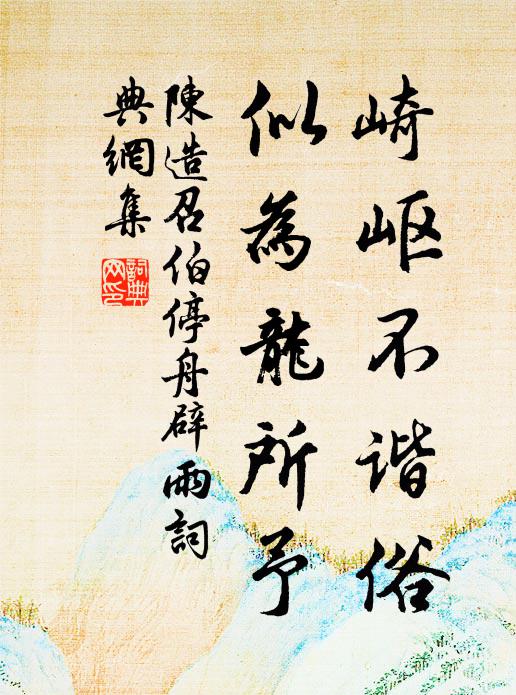 崎岖不谐俗
似為龍所予
陳造召伯停舟辟雨詞
典網集
詞典网印